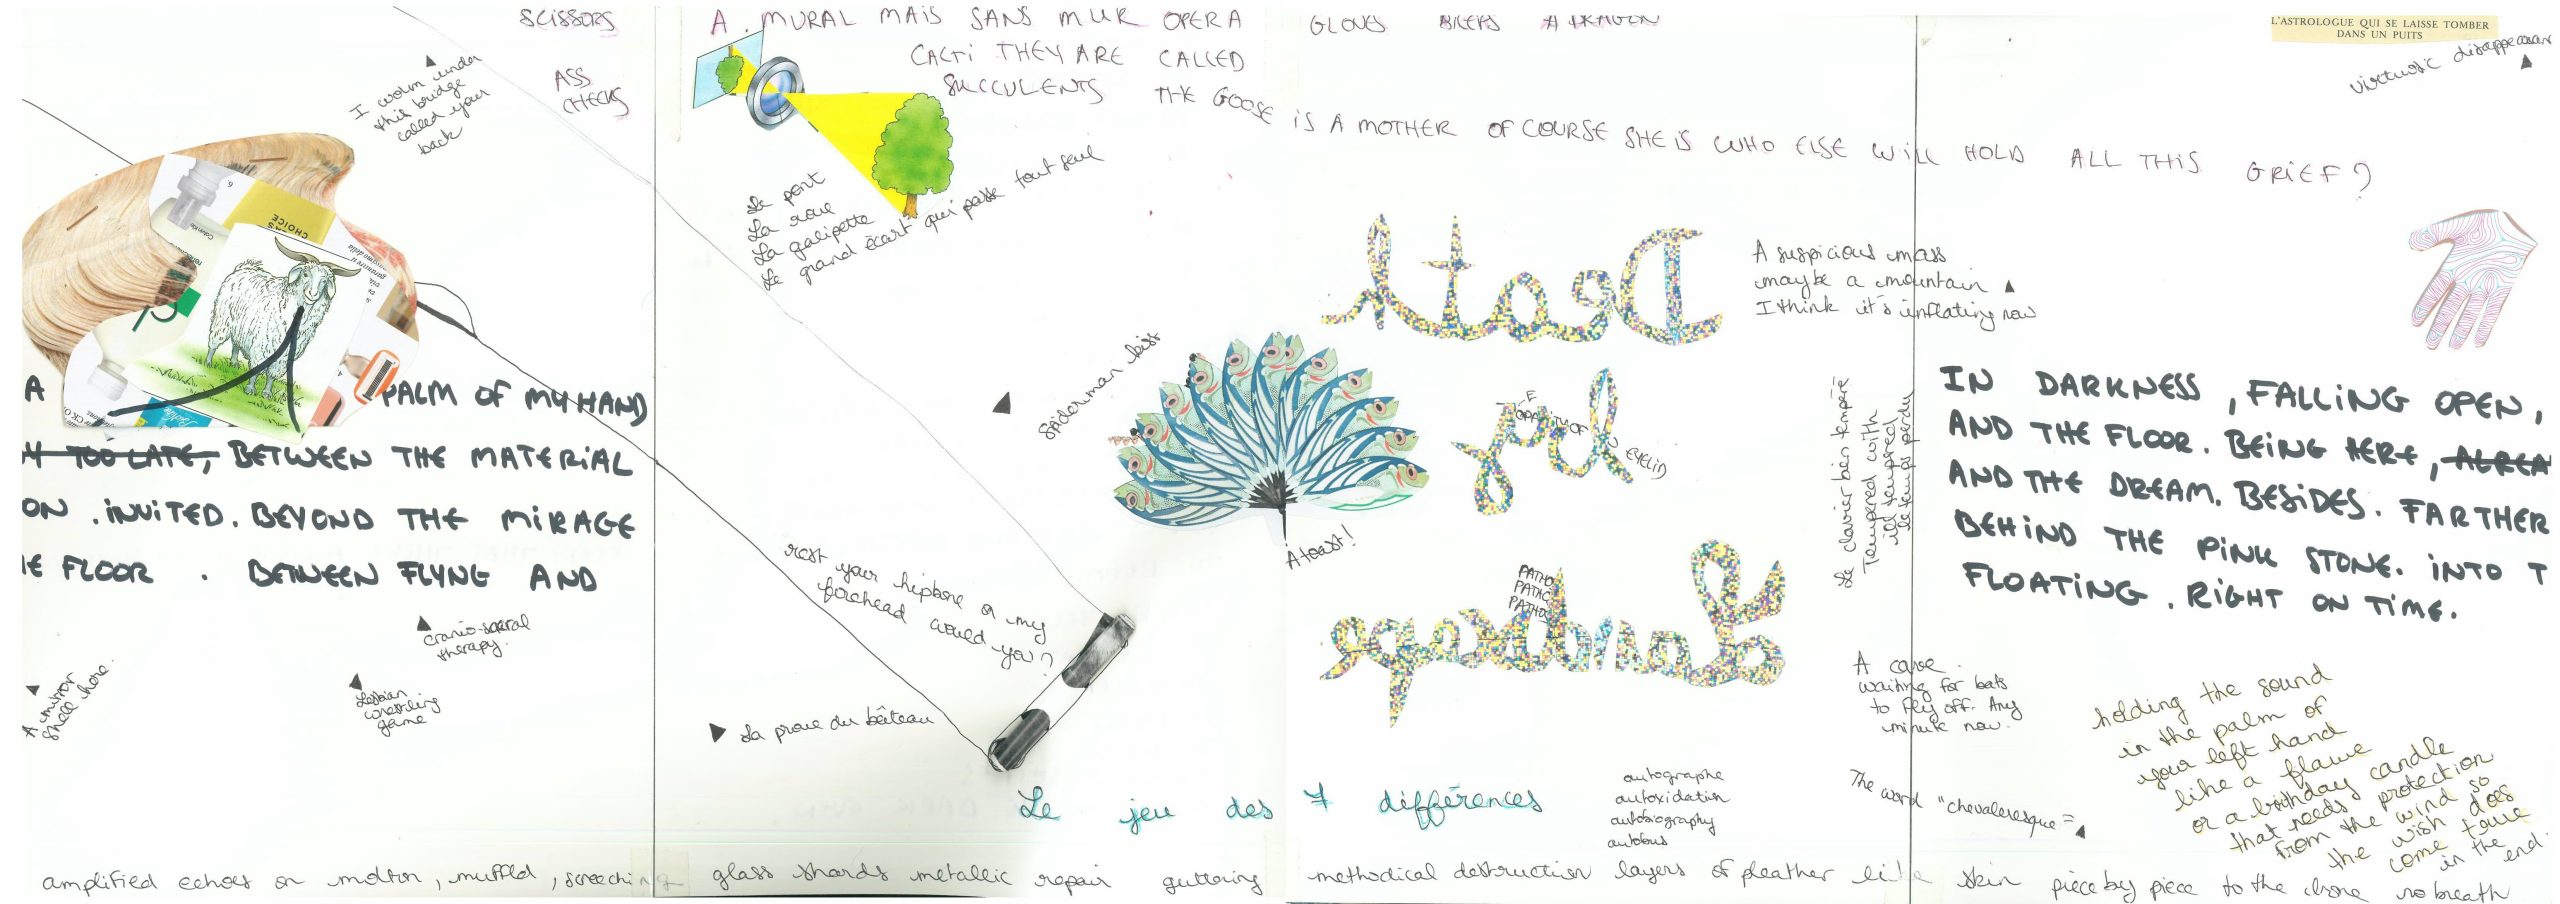 SCISSORS
ASS
CHEEKS
I worm under
this bridge
called your
back
CHOICE
A
PALM OF MY HAND
TOO LATE, BETWEEN THE MATERIAL
ON. INVITED. BEYOND THE MIRAGE
E FLOOR. BETWEEN FLYNG AND
cranio-sacral
therapy.
Lesbian
wrestling
game
A mirror
shell here.
A. MURAL MAIS SANS MUR OPERA GLOVES BICEPS A DRAGON
CACTI THEY ARE CALLED
SUCCULENTS THE GOOSE IS A MOTHER OF COURSE SHE IS WHO ELSE WILL HOLD ALL THIS GRIEF?
Le pont
La roue
La galipette
Le grand écart qui passe tout seul
Spiderman kiss
A toast!
rest your hipbone on my
forehead would you?
La proue du bâteau
Death
Joy
OPACITY OF
EYELID
Landscape
PATHO
PATHO
PATHO
A suspicious mass
maybe a mountain
I think it's inflating now
Le clavier bien tempéré
Tempered with
ill tempered
le temps perdu
L'ASTROLOGUE QUI SE LAISSE TOMBER
DANS UN PUITS
virtuosic disappearan
IN DARKNESS, FALLING OPEN,
AND THE FLOOR. BEING HERE, ALREA
AND THE DREAM. BESIDES. FARTHER
BEHIND THE PINK STONE. INTO T
FLOATING. RIGHT ON TIME.
A cave
waiting for bats
to fly off. Any
minute now.
The word "chevaleresque"=
holding the sound
in the palm of
your left hand
like a flame
or a birthday candle
that needs protection
from the wind so
the wish does
come true
in the end.
Le jeu des 7 différences
autographe
autoxidation
autobiography
autobus
amplified echoes on molton, muffled, screeching glass shards metallic repair guttering methodical destruction layers of pleather like skin piece by piece to the bone no breath